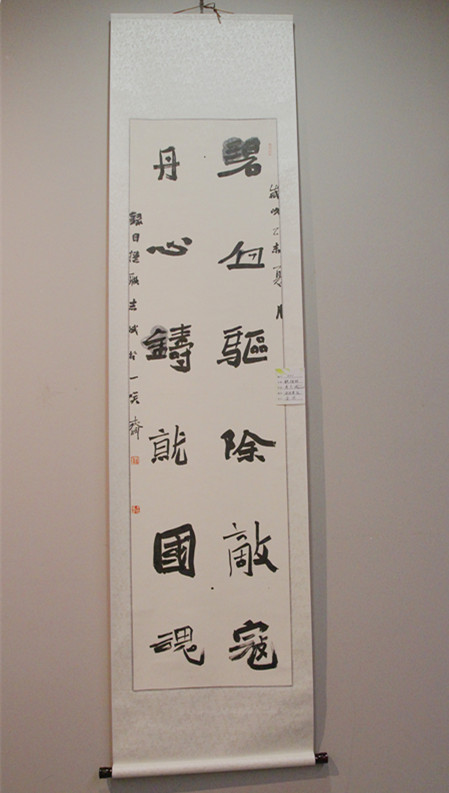 碧血驅除敵寇
丹心鑄就國魂
歲次乙未夏月
錄自
志斌於一笑齋